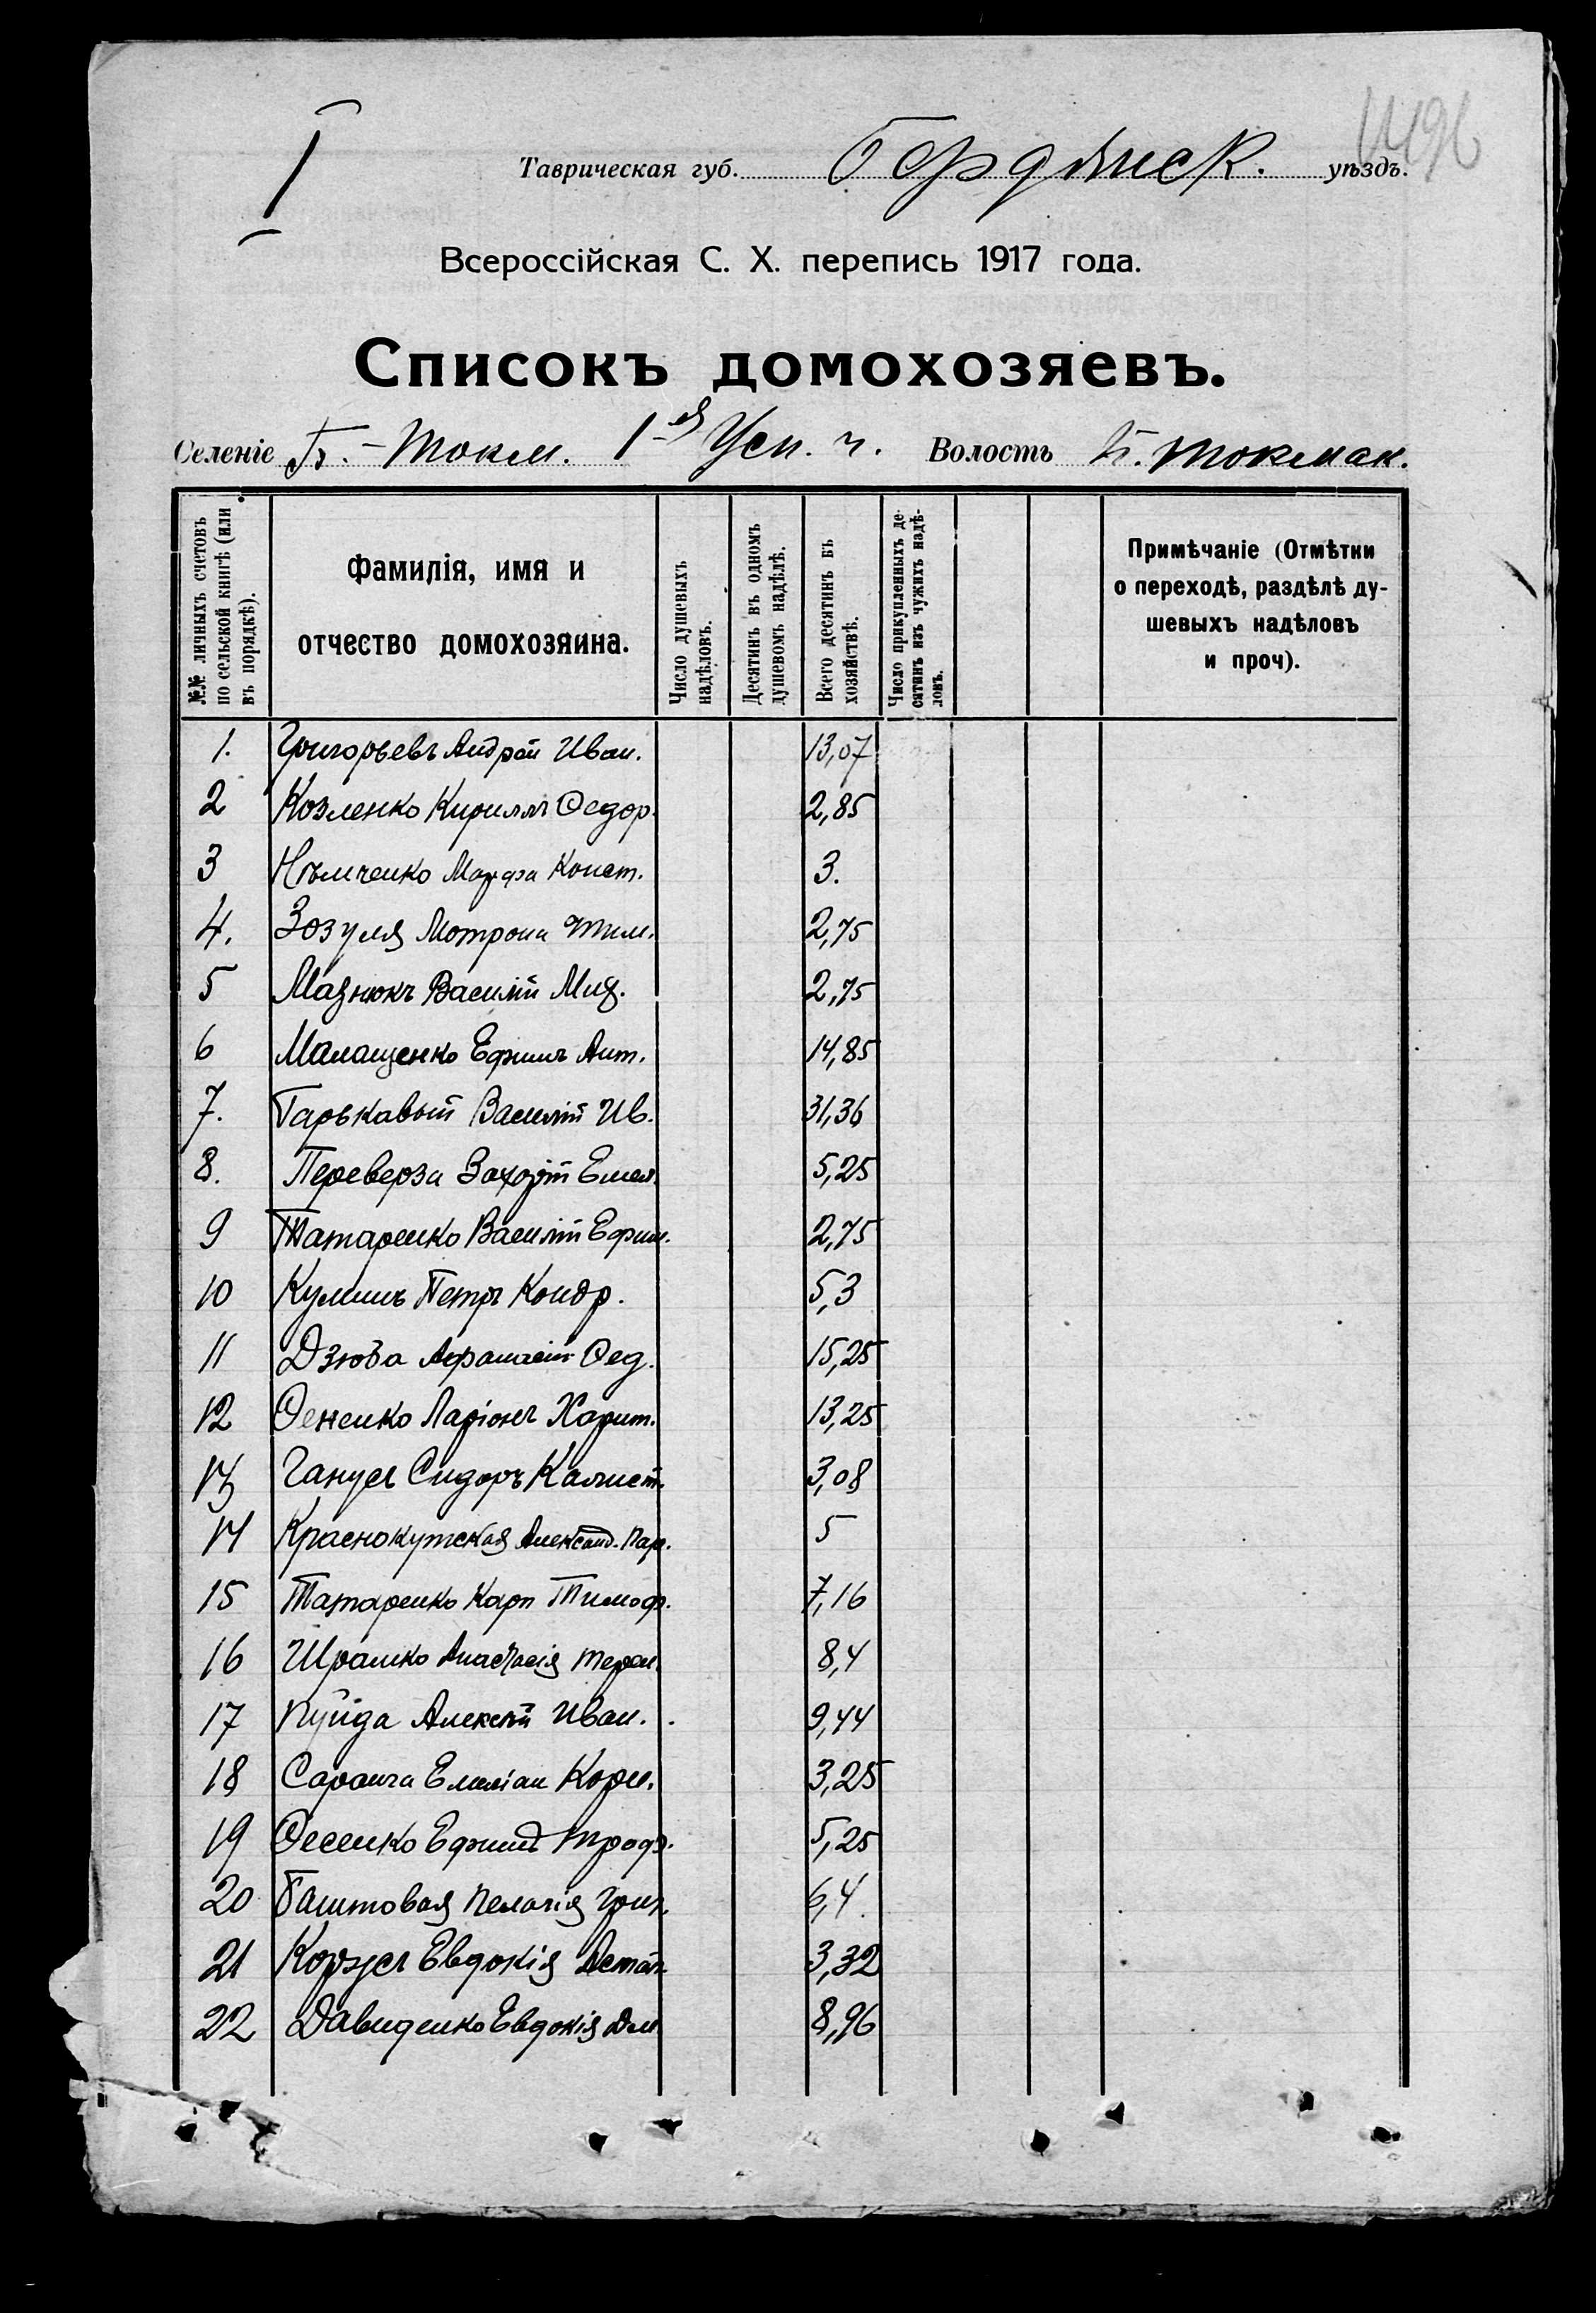 I
Таврическая губ. Бердянск. уѣздъ.
Всероссійская С. Х. перепись 1917 года.
Списокъ домохозяевъ.
Селеніе Б.-Токм. 1-я Усп. ч. Волость Б. Токмак.
№№ личныхъ счетовъ по сельской книгѣ (или въ порядкѣ).
Фамилія, имя и отчество домохозяина.
Число душевыхъ надѣловъ.
Десятинъ въ одномъ душевомъ надѣлѣ.
Всего десятинъ въ хозяйствѣ.
Число прикупленныхъ десятинъ изъ чужихъ надѣловъ.
Примѣчаніе (Отмѣтки
о переходѣ, раздѣлѣ ду-
шевыхъ надѣловъ
и проч).
1. Григорьевъ Андрей Иван. 13,07
2 Козленко Кириллъ Ѳедор. 2,85
3 Нѣмченко Марфа Конст. 3.
4. Зозуля Мотрона Тим. 2,75
5 Мазнюкъ Василій Мих. 2,75
6 Малащенко Ефимъ Ант. 14,85
7. Гарькавый Василій Ив. 31,36
8. Переверза Захарій Емел. 5,25
9 Татаренко Василій Ефим. 2,75
10 Кулишъ Петръ Кондр. 5,3
11 Дзюба Афанасій Ѳед. 15,25
12 Ѳененко Ларіонъ Харит. 13,25
13 Ганусъ Сидоръ Калист. 3,08
14 Краснокутская Александ. Пар. 5
15 Татаренко Карп Тимоф. 7,16
16 Шрамко Анастасія Терен. 8,4
17 Пуйда Алексѣй Иван. 9,44
18 Саранча Емеліан Корн. 3,25
19 Ѳесенко Ефимъ Троф. 5,25
20 Баштовая Пелагія Григ. 6,4
21 Коржъ Евдокія 3,32
22 Давиденко Евдокія Дм 8,96